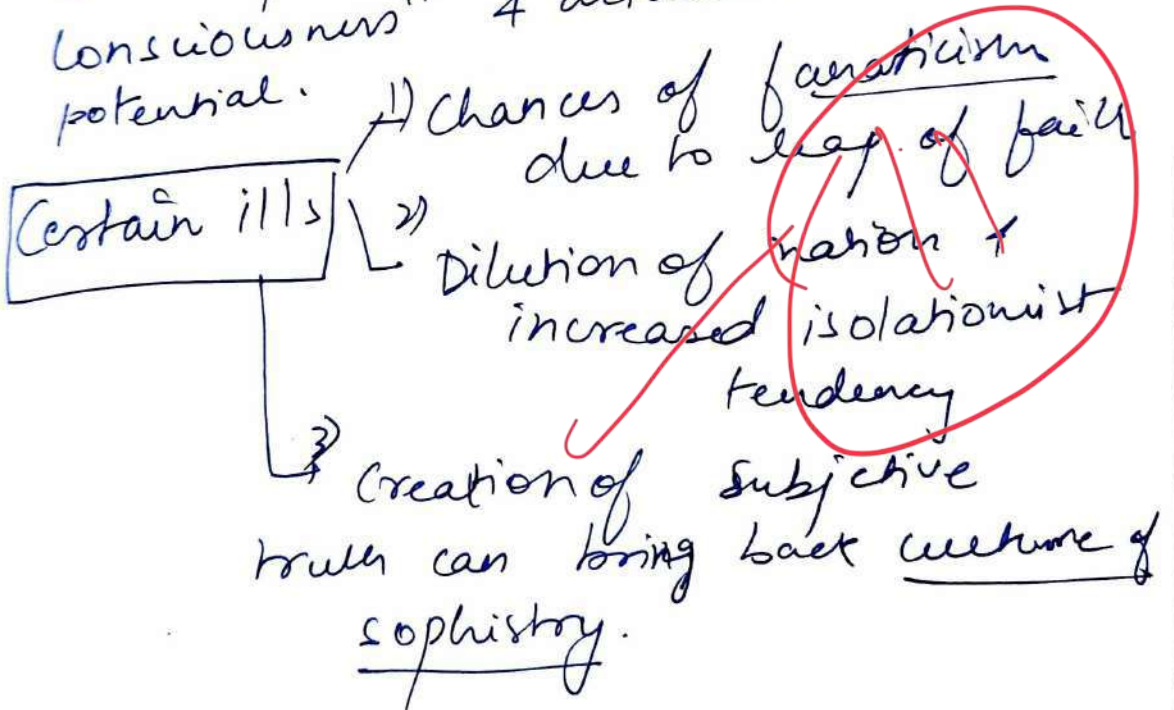 Consciousness" &
potential.
1) Chances of fanaticism
due to leap of faith
Certain ills
2) Dilution of nation &
increased isolationist
tendency
3) Creation of subjctive
truth can bring back culture of
sophistry.